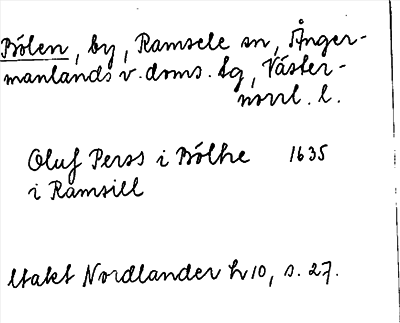 Bölen, by, Ramsele sn, Ånger-
manlands v. doms. tg, Väster-
norrl. l.
Oluf Perss i Bölhe 1635
i Ramsill
Utakt Nordlander h 10, s. 27.